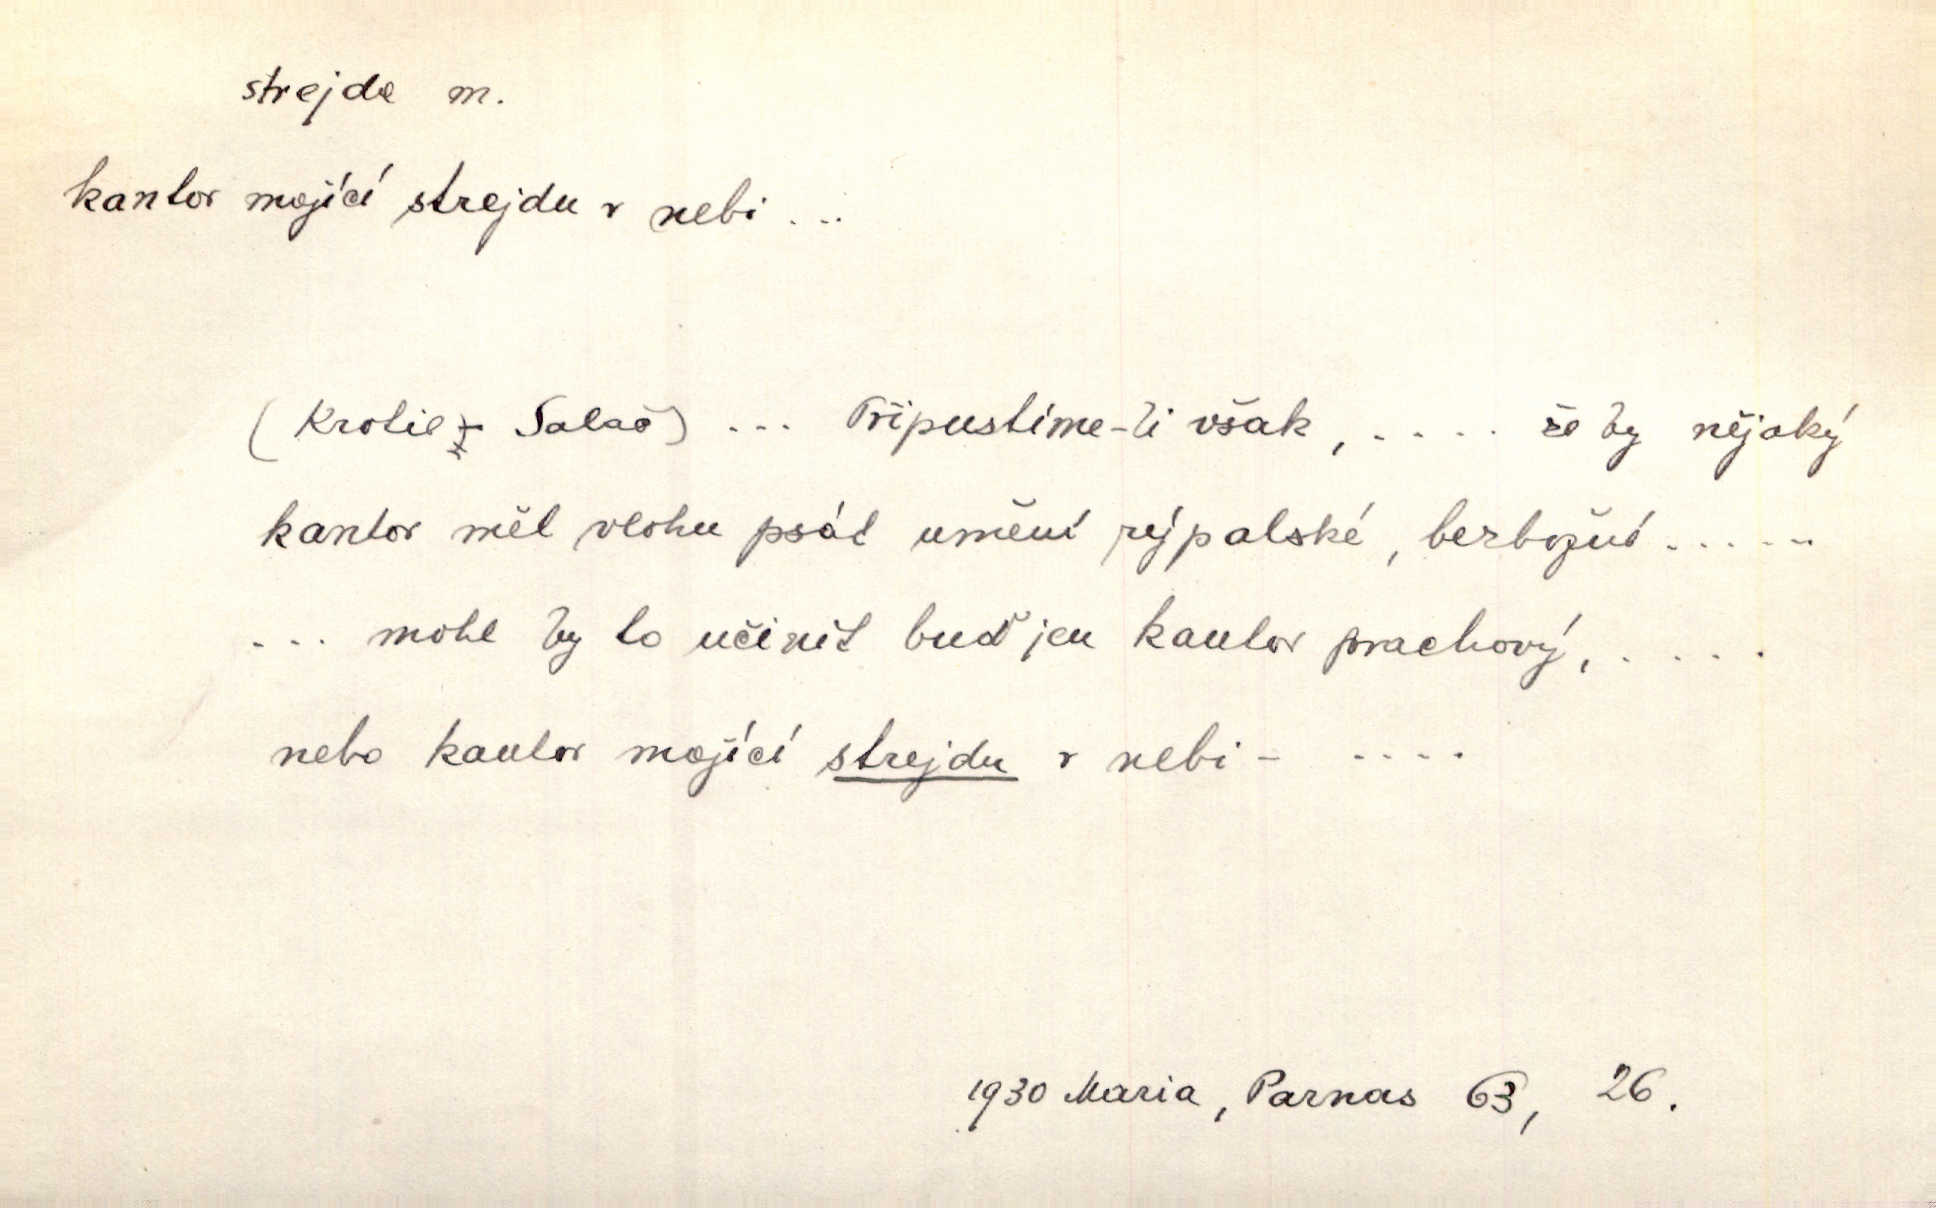 strejda m.
kantor mající strejdu v nebi ...
( Salač) ... Připustíme-li však, .... že by nějaký
kantor měl vlohu psát umění rýpalské, bezbožní .....
... mohl by to učinit buď jen kantor prachový, .....
nebo kantor mající strejdu v nebi - ....
1930 Maria, Parnas 63, 26.